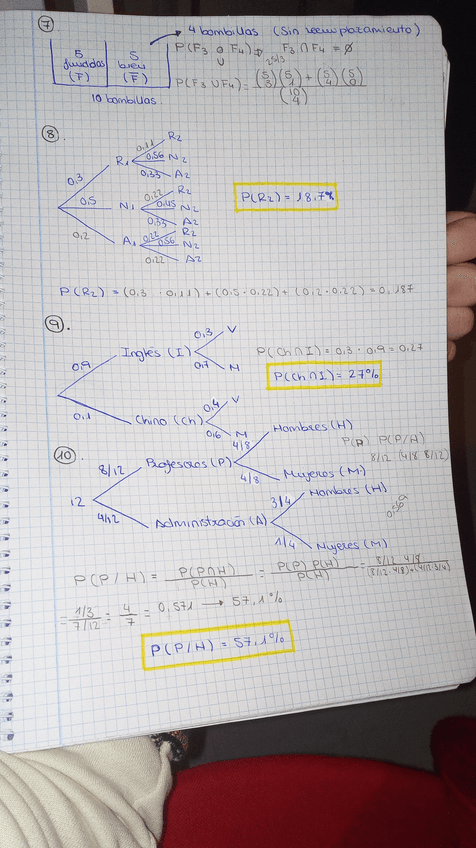 7
4 bombillas (Sin reemplazamiento)
5 fundidas (F) 5 bien (F̅)
10 bombillas
P(F3 o F4) F3 ∩ F4 = ∅
U
P(F3 ∪ F4) = (5 3)(5 1) + (5 4)(5 0) / (10 4)
8.
0,3 R1 0,11 R2
0,56 N2
0,33 A2
0,5 N1 0,22 R2
0,45 N2
0,33 A2
0,2 A1 0,22 R2
0,56 N2
0,22 A2
P(R2) = 18.7%
P(R2) = (0,3 · 0,11) + (0,5 · 0,22) + (0,2 · 0,22) = 0,187
9.
0,9 Inglés (I) 0,3 V
0,7 M
0,1 Chino (Ch) 0,4 V
0,6 M
P(Ch ∩ I) = 0,3 · 0,9 = 0,27
P(Ch ∩ I) = 27%
10.
12
8/12 Profesores (P) 4/8 Hombres (H)
4/8 Mujeres (M)
4/12 Administración (A) 3/4 Hombres (H)
1/4 Mujeres (M)
P(P) P(P/H)
8/12 (4/8 8/12)
P(P/H) = P(P∩H) / P(H) = P(P) P(H) / P(H) = 8/12 · 4/8 / (8/12 · 4/8) + (4/12 · 3/4)
= 1/3 / 7/12 = 4/7 = 0,571 → 57,1%
P(P/H) = 57,1%